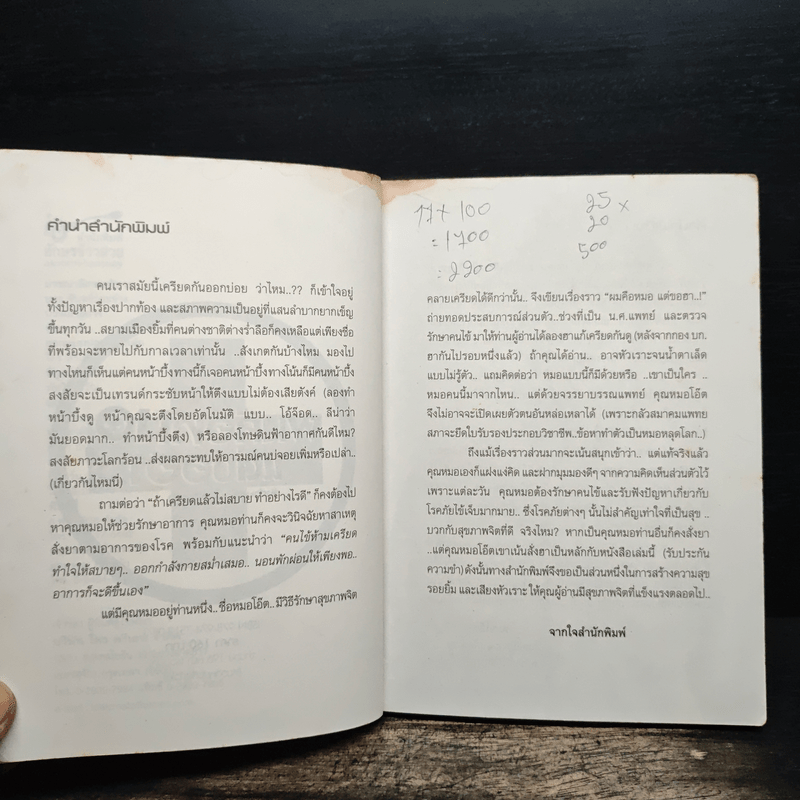 คำนำสำนักพิมพ์
คนเราสมัยนี้เครียดกันออกบ่อย ว่าไหม..?? ก็เข้าใจอยู่
ทั้งปัญหาเรื่องปากท้อง และสภาพความเป็นอยู่ที่แสนลำบากยากเข็ญ
ขึ้นทุกวัน ..สยามเมืองยิ้มที่คนต่างชาติต่างร่ำลือก็คงเหลือแต่เพียงชื่อ
ที่พร้อมจะหายไปกับกาลเวลาเท่านั้น ..สังเกตกันบ้างไหม มองไป
ทางไหนก็เห็นแต่คนหน้าบึ้งทางนี้ก็เจอคนหน้าบึ้งทางโน้นก็มีคนหน้าบึ้ง
สงสัยจะเป็นเทรนด์กระชับหน้าให้ตึงแบบไม่ต้องเสียตังค์ (ลองทำ
หน้าบึ้งดู หน้าคุณจะตึงโดยอัตโนมัติ แบบ.. โอ้จ็อด.. ลีน่าว่า
มันยอดมาก.. ทำหน้าบึ้งตึง) หรือลองโทษดินฟ้าอากาศกันดีไหม?
สงสัยภาวะโลกร้อน ..ส่งผลกระทบให้อารมณ์คนบ่อยเพิ่มหรือเปล่า..
(เกี่ยวกันไหมนี่)
ถามต่อว่า "ถ้าเครียดแล้วไม่สบาย ทำอย่างไรดี" ก็คงต้องไป
หาคุณหมอให้ช่วยรักษาอาการ คุณหมอท่านก็คงจะวินิจฉัยหาสาเหตุ
สั่งยาตามอาการของโรค พร้อมกับแนะนำว่า "คนไข้ห้ามเครียด
ทำใจให้สบายๆ.. ออกกำลังกายสม่ำเสมอ.. นอนพักผ่อนให้เพียงพอ..
อาการก็จะดีขึ้นเอง"
แต่มีคุณหมออยู่ท่านหนึ่ง.. ชื่อหมอโอ๊ต.. มีวิธีรักษาสุขภาพจิต
17+ 100
= 1700
= 2200
25 x
20
500
คลายเครียดได้ดีกว่านั้น.. จึงเขียนเรื่องราว "ผมคือหมอ แต่ขอฮา..!"
ถ่ายทอดประสบการณ์ส่วนตัว..ช่วงที่เป็น น.ศ.แพทย์ และตรวจ
รักษาคนไข้ มาให้ท่านผู้อ่านได้ลองฮาแก้เครียดกันดู (หลังจากกอง บก.
ฮากันไปรอบหนึ่งแล้ว) ถ้าคุณได้อ่าน.. อาจหัวเราะจนน้ำตาเล็ด
แบบไม่รู้ตัว.. แถมคิดต่อว่า หมอแบบนี้ก็มีด้วยหรือ ..เขาเป็นใคร ..
หมอคนนี้มาจากไหน.. แต่ด้วยจรรยาบรรณแพทย์ คุณหมอโอ๊ต
จึงไม่อาจจะเปิดเผยตัวตนอันหล่อเหลาได้ (เพราะกลัวสมาคมแพทย
สภาจะยึดใบรับรองประกอบวิชาชีพ..ข้อหาทำตัวเป็นหมอหลุดโลก..)
ถึงแม้เรื่องราวส่วนมากจะเน้นสนุกเข้าว่า.. แต่แท้จริงแล้ว
คุณหมอเองก็แฝงแง่คิด และฝากมุมมองดีๆ จากความคิดเห็นส่วนตัวไว้
เพราะแต่ละวัน คุณหมอต้องรักษาคนไข้ และรับฟังปัญหาเกี่ยวกับ
โรคภัยไข้เจ็บมากมาย.. ซึ่งโรคภัยต่างๆ นั้นไม่สำคัญเท่าใจที่เป็นสุข ..
บวกกับสุขภาพจิตที่ดี จริงไหม? หากเป็นคุณหมอท่านอื่นก็คงสั่งยา
..แต่คุณหมอโอ๊ตเขาเน้นสั่งฮาเป็นหลักกับหนังสือเล่มนี้ (รับประกัน
ความขำ) ดังนั้นทางสำนักพิมพ์จึงขอเป็นส่วนหนึ่งในการสร้างความสุข
รอยยิ้ม และเสียงหัวเราะ ให้คุณผู้อ่านมีสุขภาพจิตที่แข็งแรงตลอดไป..
จากใจสำนักพิมพ์